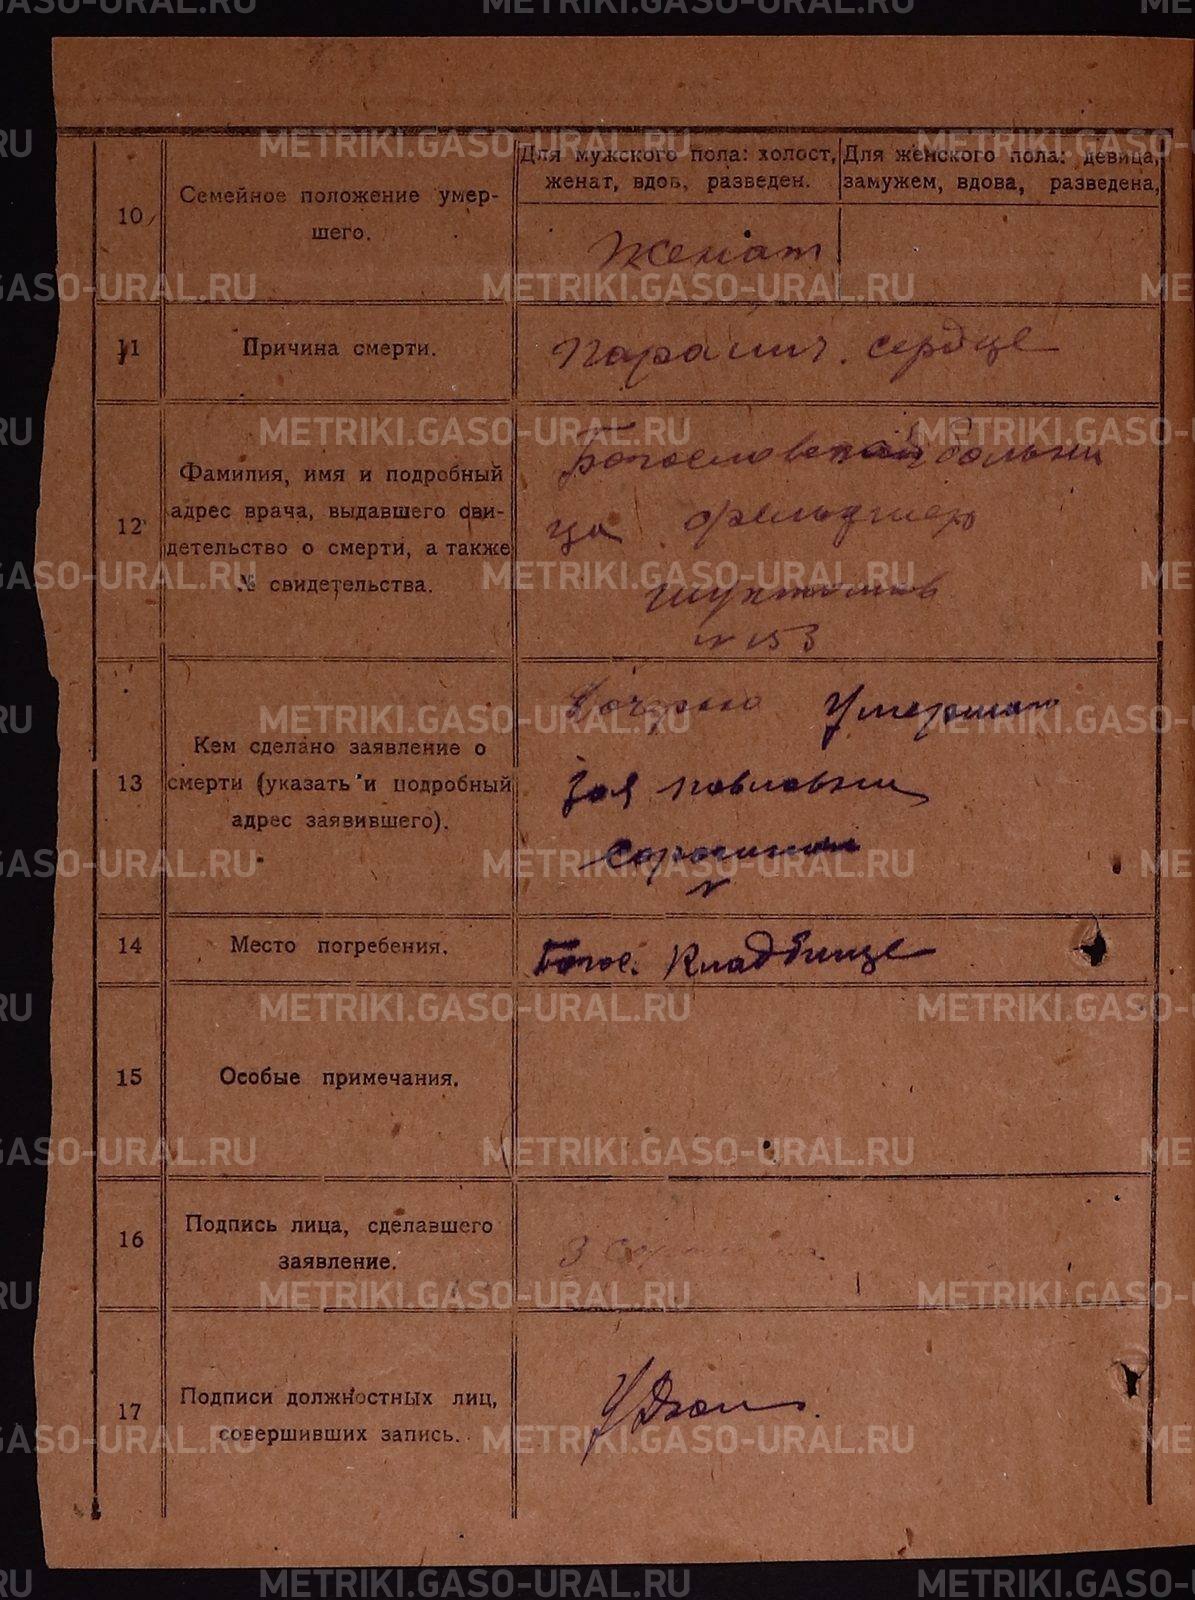 METRIKI.GASO-URAL.RU
10
Семейное положение умер-
шего.
Для мужского пола: холост,
женат, вдов, разведен.
Для женского пола: девица,
замужем, вдова, разведена,
Женат
11
Причина смерти.
Паралич. сердце
12
Фамилия, имя и подробный
адрес врача, выдавшего сви-
детельство о смерти, а также
№ свидетельства.
Богословской больни
ца фельдшер
№ 153
13
Кем сделано заявление о
смерти (указать и подробный
адрес заявившего).
Дочерью Умершаго
Зоя Павловни
14
Место погребения.
Богос. Кладбище
15
Особые примечания.
16
Подпись лица, сделавшего
заявление.
17
Подписи должностных лиц,
совершивших запись.